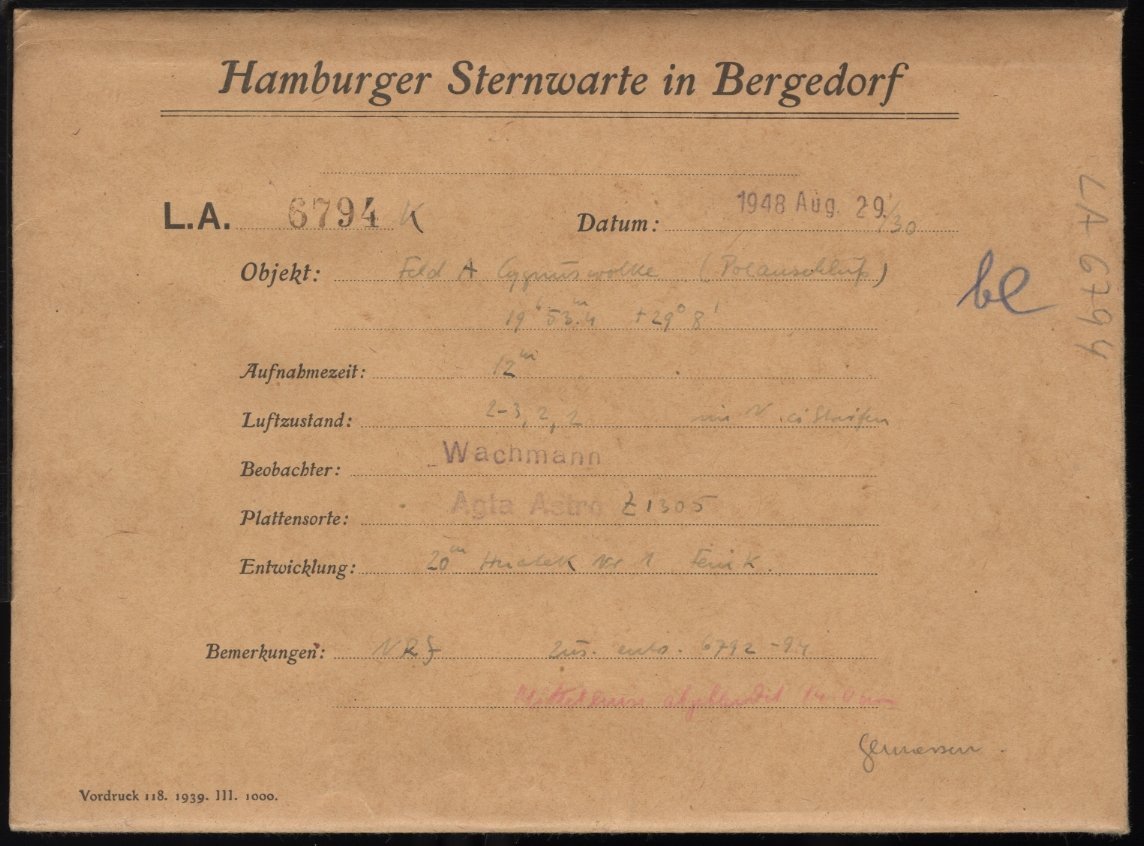 Hamburger Sternwarte in Bergedorf
L.A. 6794 K
Datum: 1948 Aug. 29./30
Objekt: Feld A Cygnuswolke (Polanschluß)
19h 53m.4 +29° 8'
Aufnahmezeit: 12m
Luftzustand: 2-3, 2, 2 im N
Beobachter: Wachmann
Plattensorte: Agfa Astro Z 1305
Entwicklung: 20m Hr 1
Bemerkungen: NRf Zus. entw. 6792-94
Mittellinse abgeblendet
Gemessen.
bl
LA 6794
Vordruck 118. 1939. III. 1000.